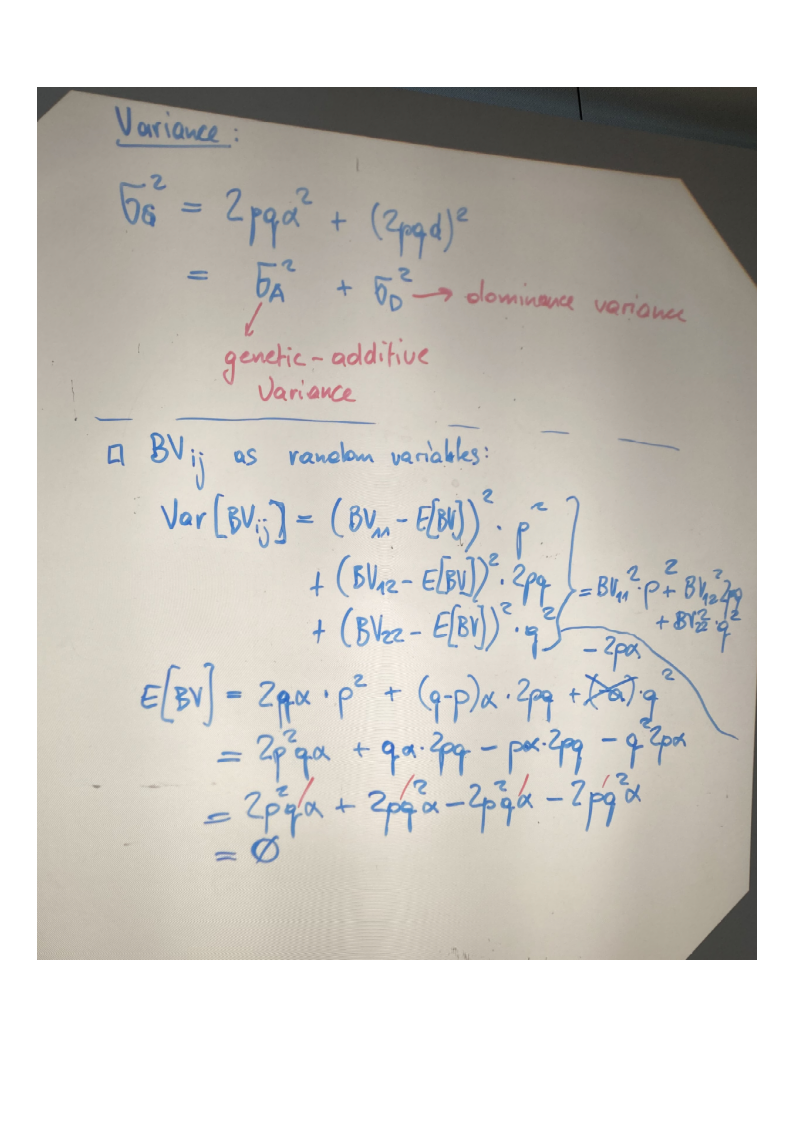 Variance:
σ_G² = 2pqα² + (2pqd)²
= σ_A² + σ_D² → dominance variance
genetic-additive
Variance
□ BV_ij as random variables:
Var[BV_ij] = (BV_11 - E[BV])² · p²
+ (BV_12 - E[BV])² · 2pq = BV_11² · p² + BV_12² 2pq
+ (BV_22 - E[BV])² · q² + BV_22² · q²
- 2pα
E[BV] = 2qα · p² + (q-p)α · 2pq + · q²
= 2p²qα + qα · 2pq - pα · 2pq - q² 2pα
= 2p²qα + 2pq²α - 2p²qα - 2pq²α
= Ø